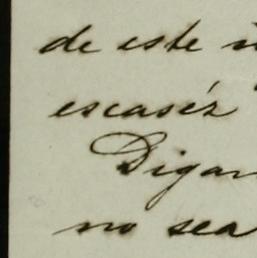 de este
escaséz
Digan
no sea